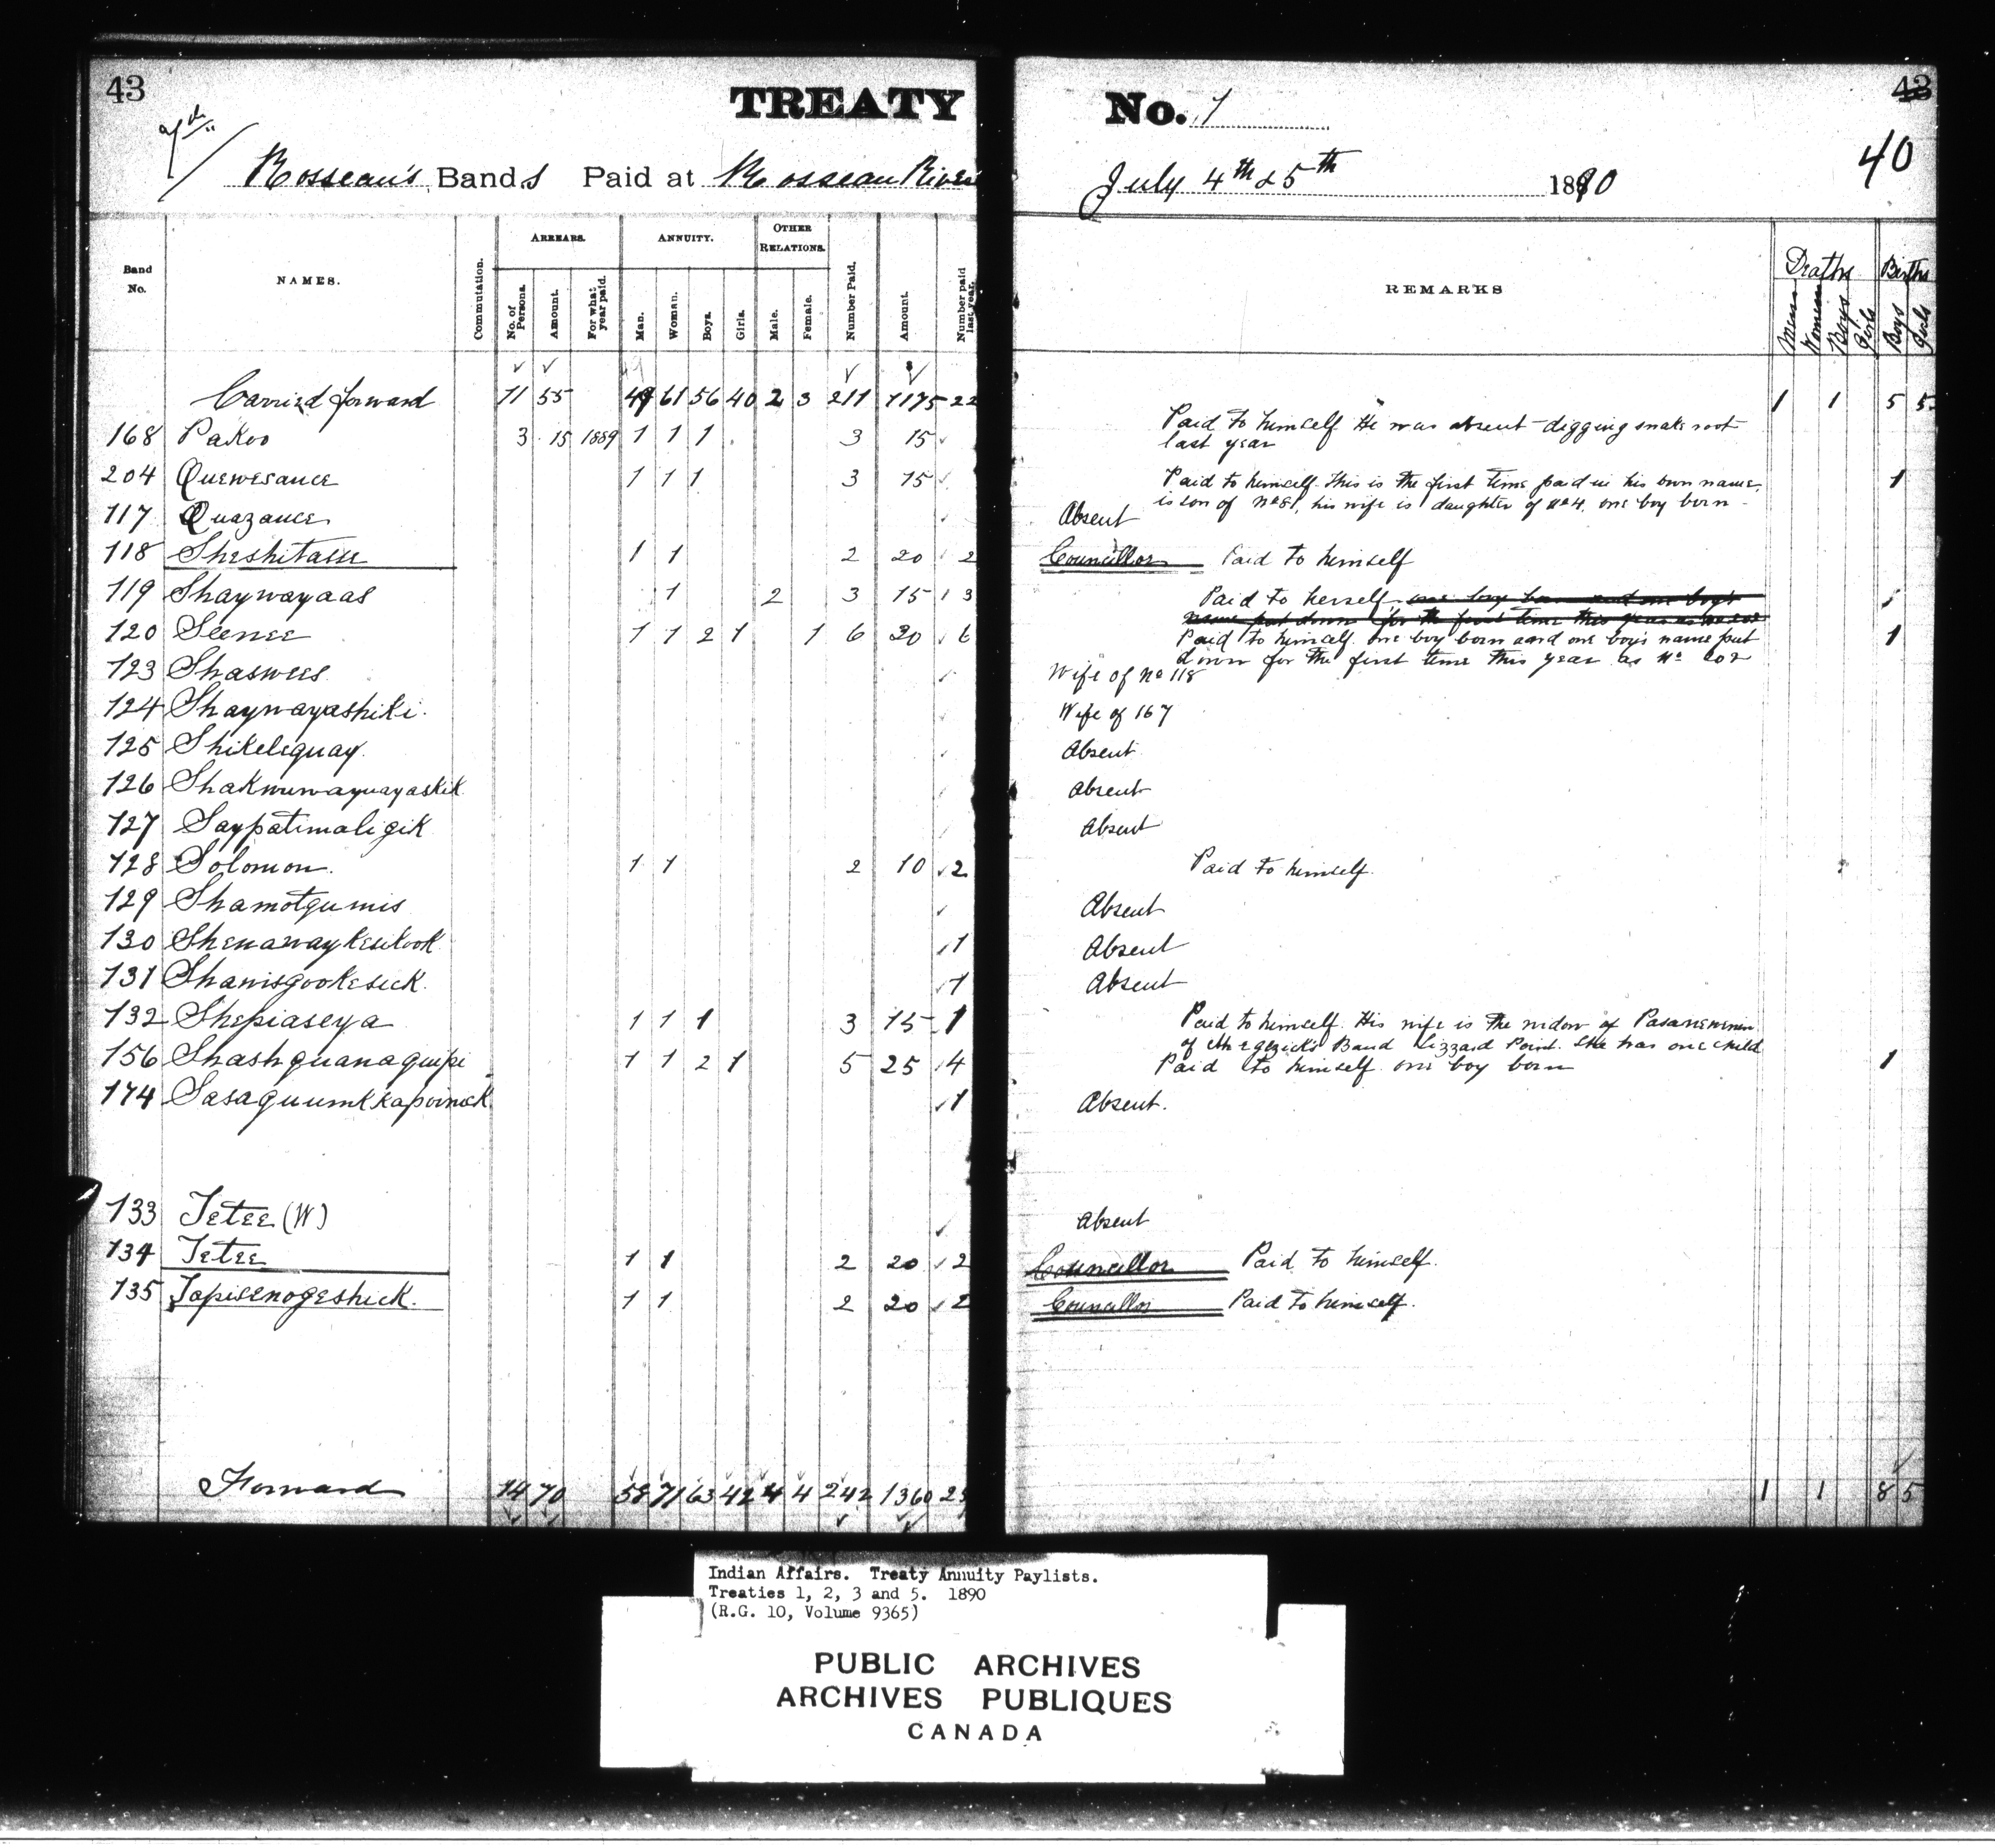 43 TREATY No. 1 43
40
Rosseau's Bands Paid at Rosseau River July 4th & 5th 1890
Band No. NAMES. Commutation. ARREARS. No. of Persons. Amount. For what year paid. ANNUITY. Man. Woman. Boys. Girls. OTHER RELATIONS. Male. Female. Number Paid. Amount. Number paid last year. REMARKS Deaths Men Women Boys Girls Births Boys Girls
Carried forward 11 55 49 61 56 40 2 3 211 1175 22 1 1 5 5
168 Pakoo 3 15 1889 1 1 1 3 15 Paid to himself He was absent digging snake root
last year
204 Quewesance 1 1 1 3 15 Paid to himself. This is the first time paid in his own name, 1
is son of No 81, his wife is daughter of No 4. one boy born
117 Quazance Absent
118 Sheshitasse 1 1 2 20 2 Councillor Paid to himself
119 Shaywayaas 1 2 3 15 3 Paid to herself one boy born and one boy's
name put down for the first time this year as No 202
120 Seenee 1 1 2 1 1 6 20 6 Paid to himself. one boy born and one boy's name put 1
down for the first time this year as No 202
123 Shaswees Wife of No 118
124 Shaywayashiki. Wife of 167
125 Shikelequay. Absent
126 Absent
127 Saypatimaligik Absent
128 Solomon. 1 1 2 10 2 Paid to himself.
129 Shamotgumis Absent
130 Shenawaykeukook 1 Absent
131 Shanisgookesick. 1 Absent
132 Shepiaseya 1 1 1 3 15 1 Paid to himself. His wife is the widow of
of Band Lizzard Point. She has one child
156 Shashguanaquipe 1 1 2 1 5 25 4 Paid to himself one boy born 1
174 1 Absent.
133 Tetee (W) Absent
134 Tetee 1 1 2 20 2 Councillor Paid to himself.
135 Tapisenogeshick. 1 1 2 20 2 Councillor Paid to himself.
Forward 14 70 58 71 63 42 4 4 242 1360 1 1 8 5
Indian Affairs. Treaty Annuity Paylists.
Treaties 1, 2, 3 and 5. 1890
(R.G. 10, Volume 9365)
PUBLIC ARCHIVES
ARCHIVES PUBLIQUES
CANADA